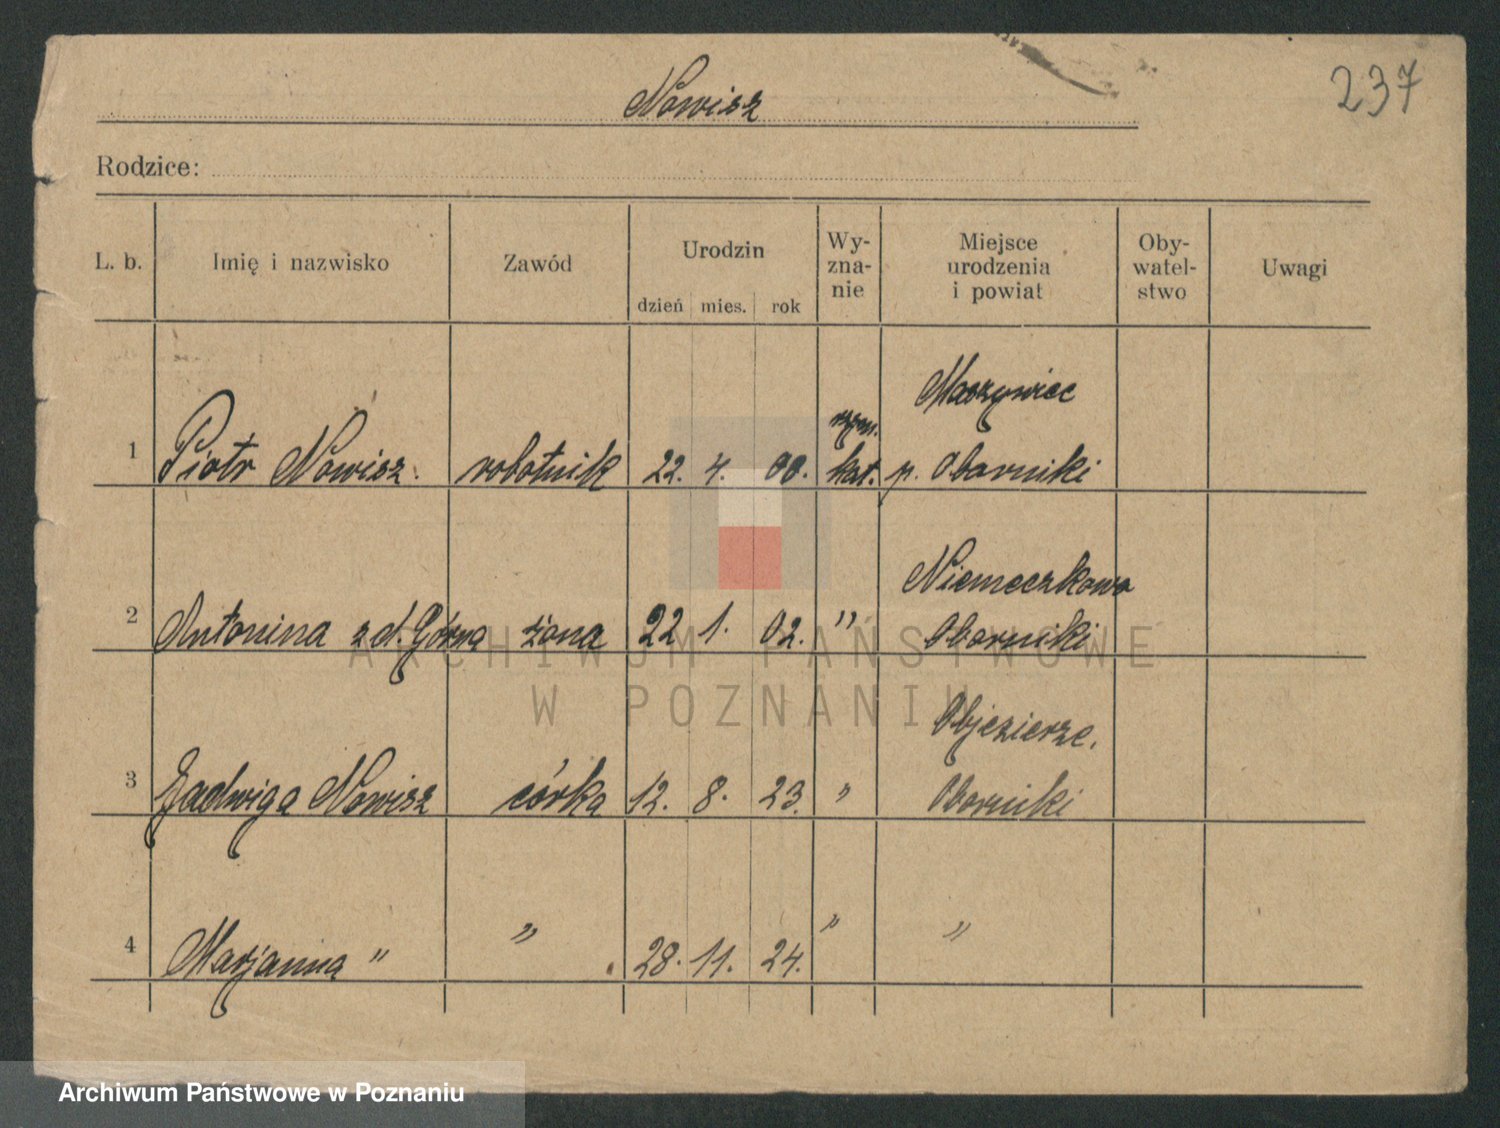 237
Nowisz
Rodzice:
L. b. Imię i nazwisko Zawód Urodzin dzień mies. rok Wy-zna-nie Miejsce urodzenia i powiat Oby-watel-stwo Uwagi
1 Piotr Nowisz. robotnik 22. 4. 00. rzym. kat. p. Oborniki
2 Antonina z d. Górna żona 22 1. 02. " Niemeczkowo Oborniki
3 Jadwiga Nowisz córka 12. 8. 23. " Objezierze. Oborniki
4 Marjanna " " 28. 11. 24. " "
ARCHIWUM PAŃSTWOWE
W POZNANIU
Archiwum Państwowe w Poznaniu